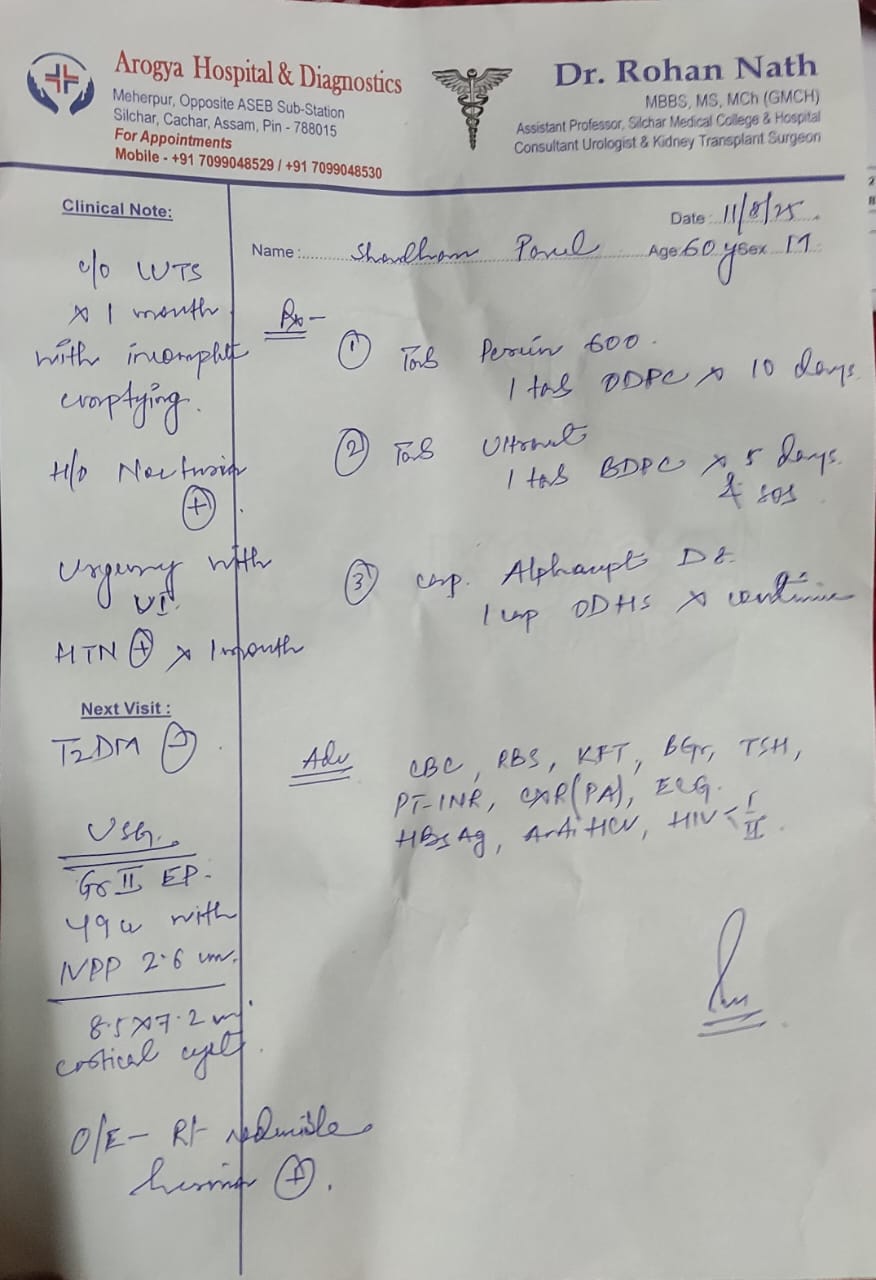 Arogya Hospital & Diagnostics
Meherpur, Opposite ASEB Sub-Station
Silchar, Cachar, Assam, Pin - 788015
For Appointments
Mobile - +91 7099048529 / +91 7099048530
Dr. Rohan Nath
MBBS, MS, MCh (GMCH)
Assistant Professor, Silchar Medical College & Hospital
Consultant Urologist & Kidney Transplant Surgeon
Date : 11/8/25
Name : Age: 60 y Sex M
Clinical Note:
c/o LUTS
x 1 month
with incomplete
emptying.
H/o Nocturia
(+).
Urgency with
UI.
HTN (+) x 1 month
Next Visit :
T2DM (-).
USG.
Gr II EP.
49 with
IVPP 2.6 cm.
8.5x7.2 cm.
cortical cyst.
O/E - Rt reducible
hernia (+).
Rx -
(1) Tab 600.
1 tab ODPC x 10 days
(2) Tab
1 tab BDPC x 5 days.
& sos
(3) cap. D8.
1 cap ODHS x continue
Adv CBC, RBS, KFT, BGr, TSH,
PT-INR, CXR(PA), ECG.
HBsAg, Anti HCV, HIV < I
II.